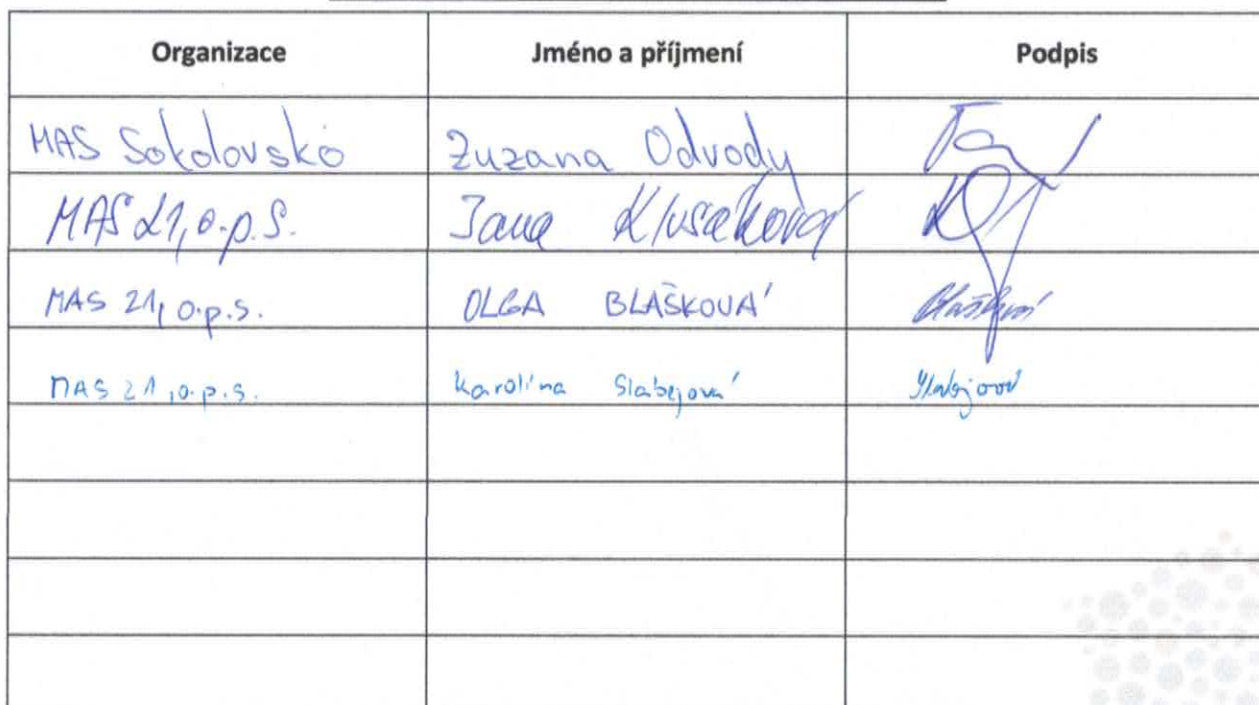 Organizace Jméno a příjmení Podpis
MAS Sokolovsko Zuzana Odvody
MAS 21, o.p.s. Jana Klusáková
MAS 21, o.p.s. OLGA BLAŠKOVÁ Blašková
MAS 21, o.p.s. Karolína Slabejová Slabejová